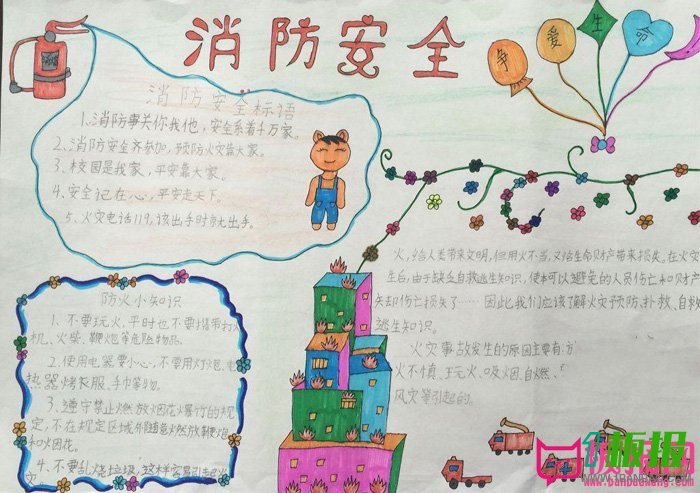 消防安全
争爱生命
消防安全标语
1、消防事关你我他，安全系着千万家。
2、消防安全齐参加，预防火灾靠大家。
3、校园是我家，平安靠大家。
4、安全记在心，平安走天下。
5、火灾电话119，该出手时就出手。
防火小知识
1、不要玩火，平时也不要携带打火
机、火柴、鞭炮等危险物品。
2、使用电器要小心，不要用灯炮、电
热器烤衣服、手巾等物。
3、遵守禁止燃放烟花火爆竹的规
定，不在规定区域外随意燃放鞭炮
和烟花。
4、不要乱烧垃圾，这样容易引起火
灾。
火，给人类带来文明，但用火不当，又给生命财产带来损失，在火灾
生后，由于缺乏自救逃生知识，使本可以避免的人员伤亡和财产
失却伤亡损失了……因此我们应该了解火灾预防、扑救、自救
逃生知识。
火灾事故发生的原因主要有：方
火不慎、玩火、吸烟、自燃、
风灾等引起的。
板报
www.banbaowang.com